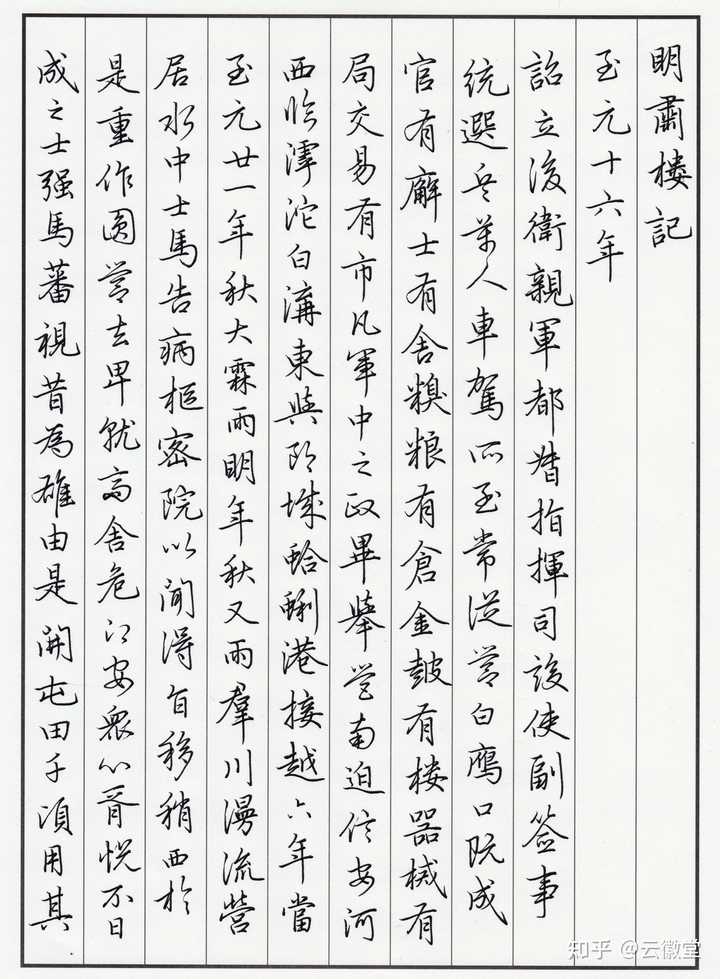 明肅楼記
至元十六年
詔立後衛親軍都督指揮司設使副簽事
統選兵萬人車駕所至常從營白鷹口既成
官有廨士有舍糗粮有倉金鼓有楼器械有
局交易有市凡軍中之政畢舉營南迫信安河
西临滹沱白溝東與郎城蛤蜊港接越六年當
至元廿一年秋大霖雨明年秋又雨羣川漫流營
居水中士馬告病枢密院以聞得旨移稍西於
是重作圓營去卑就高舍危以安衆心胥悦不日
成之士强馬蕃視昔為雄由是開屯田千頃用其
知乎 @云徽堂